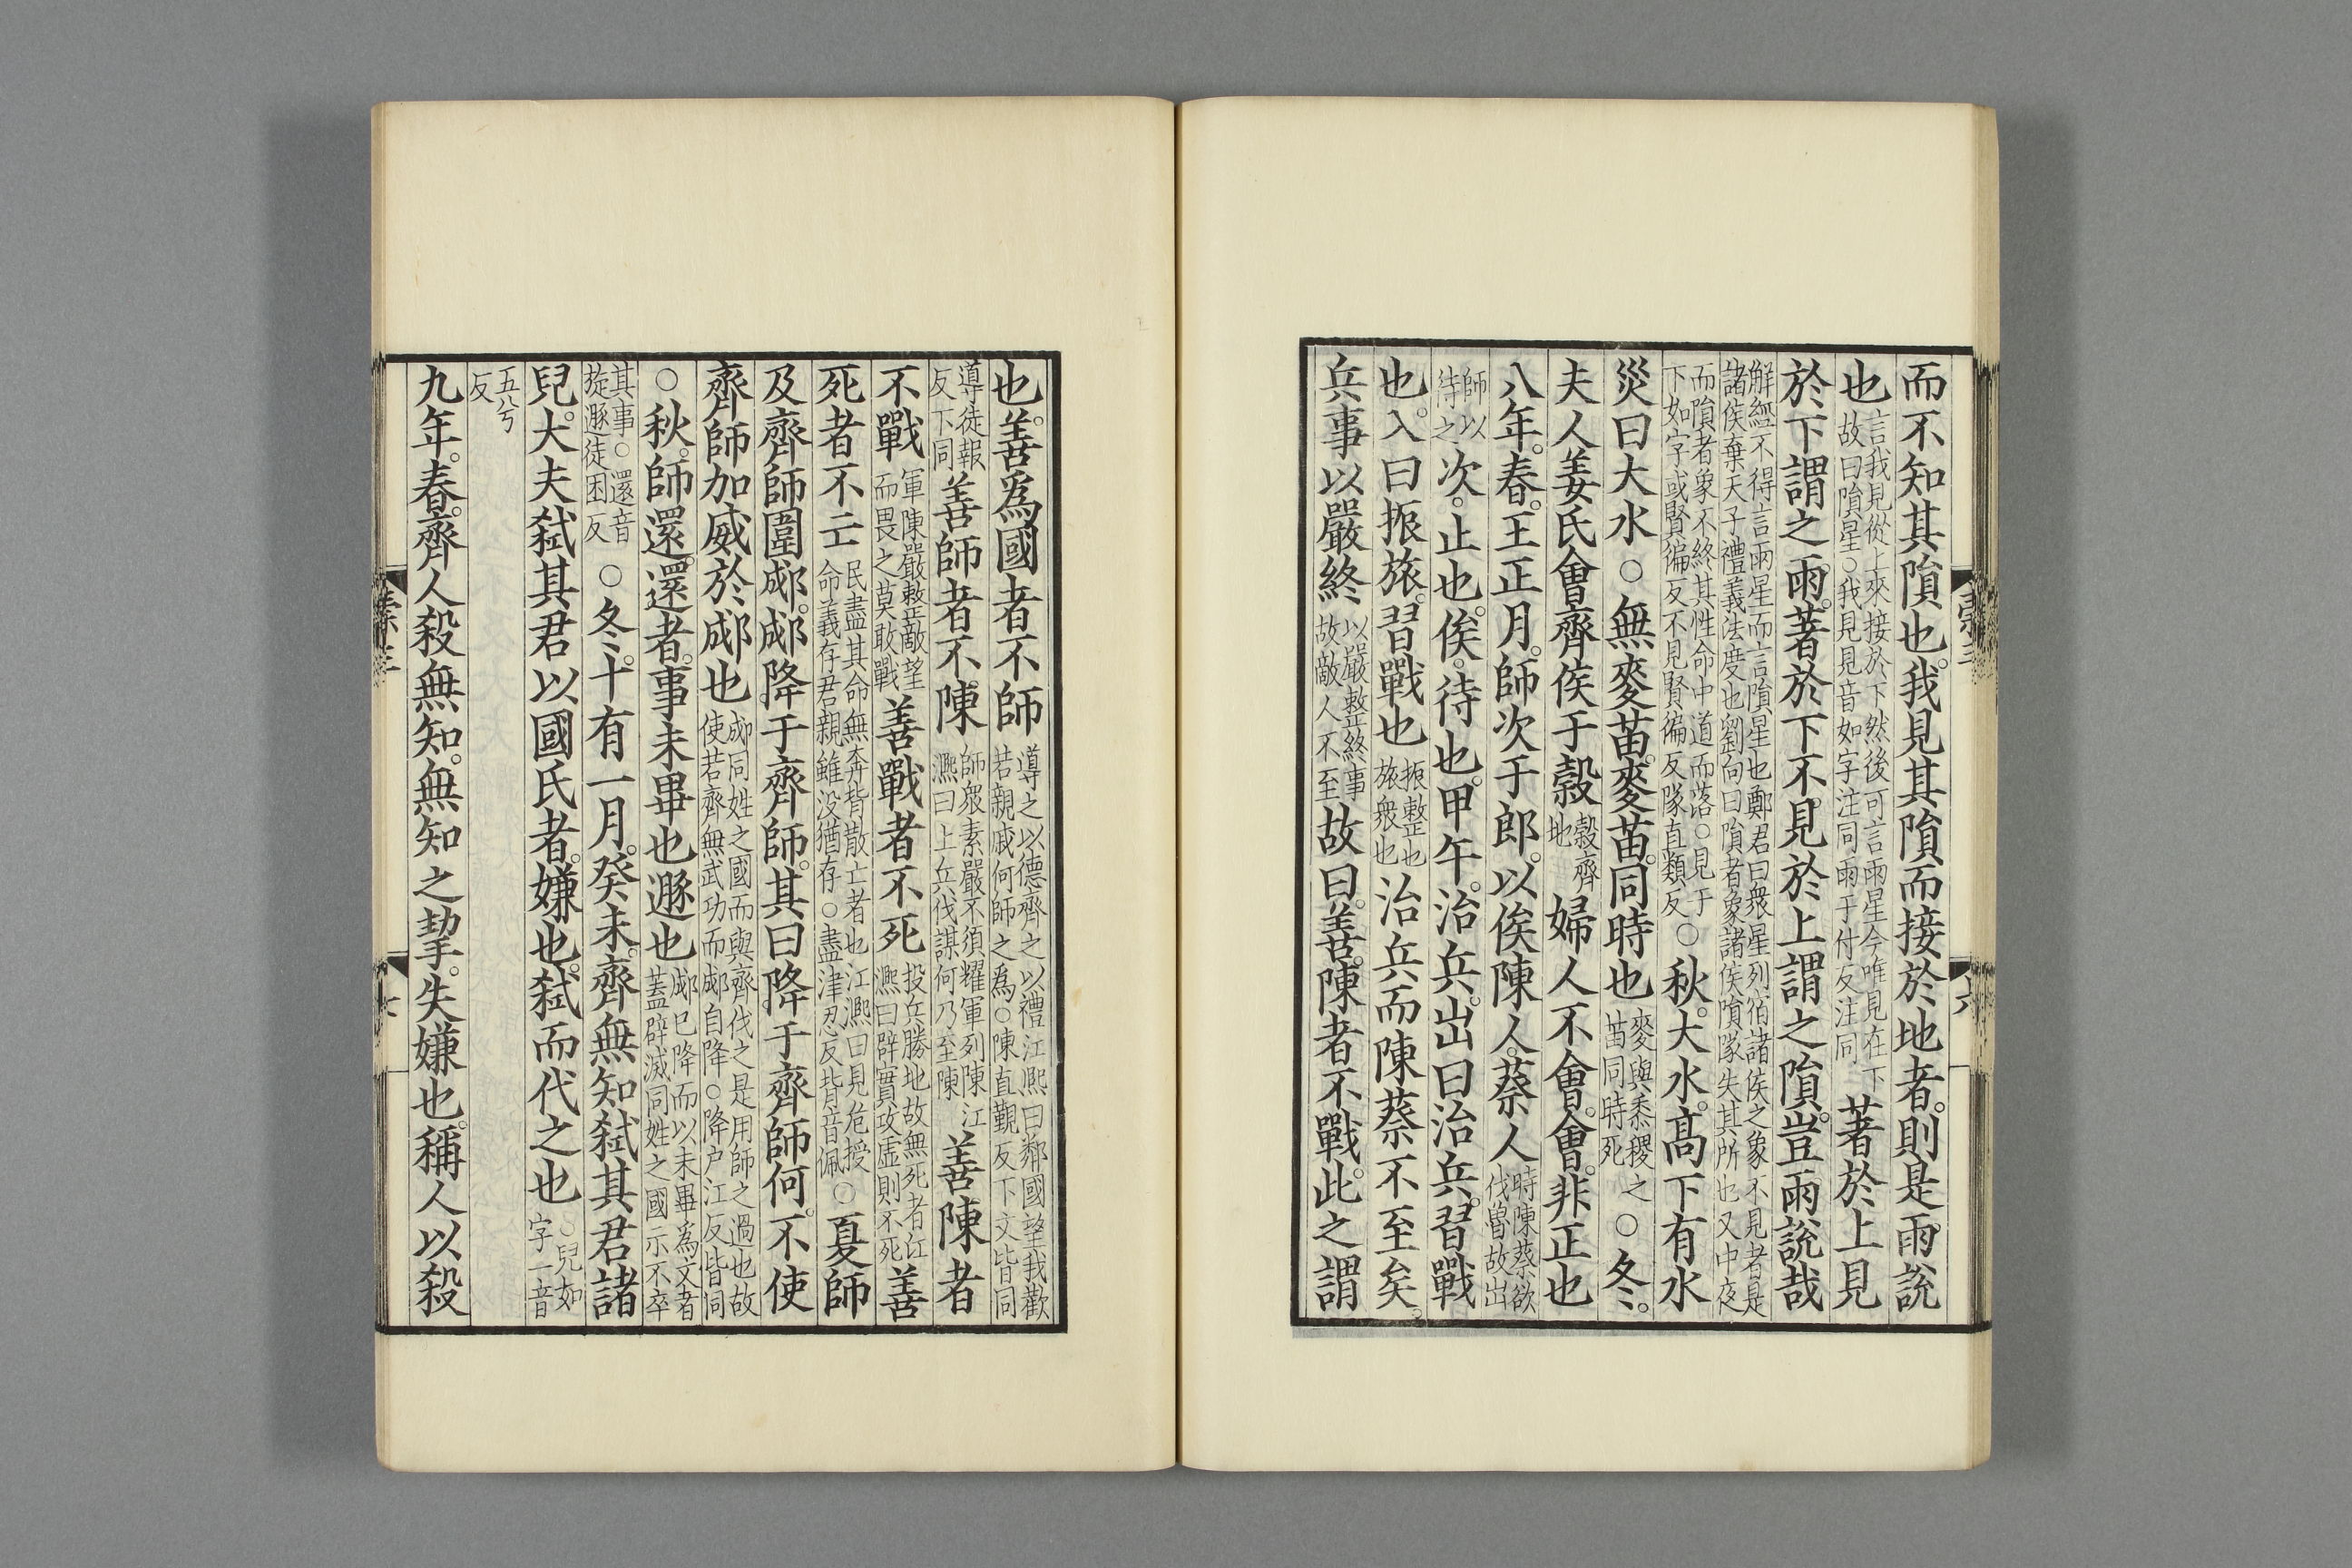 而不知其隕也我見其隕而接於地者則是雨說
也言我見從上來接於下然後可言雨星今唯見在下故曰隕星○我見見音如字注同雨于付反注同著於上見
於下謂之雨著於下不見於上謂之隕豈雨說哉
解經不得言雨星而言隕星也鄭君曰衆星列宿諸侯之象不見者是諸侯棄天子禮義法度也劉向曰隕者象諸侯隕隊失其所也又中夜
而隕者象不終其性命中道而落○見于下如字或賢徧反不見賢徧反隊直類反○秋大水高下有水
災曰大水○無麥苗麥苗同時也麥與黍稷之苗同時死○冬
夫人姜氏會齊侯于穀穀齊地婦人不會會非正也
八年春王正月師次于郎以俟陳人蔡人時陳蔡欲伐魯故出
師以待之次止也俟待也甲午治兵出曰治兵習戰
也入曰振旅習戰也振整也旅衆也治兵而陳蔡不至矣
兵事以嚴終以嚴整終事故敵人不至故曰善陳者不戰此之謂
也善爲國者不師導之以德齊之以禮江熙曰鄰國望我歡若親戚何師之爲○陳直覲反下文皆同
導徒報反下同善師者不陳師衆素嚴不須耀軍列陳江熙曰上兵伐謀何乃至陳善陳者
不戰軍陳嚴整敵望而畏之莫敢戰善戰者不死投兵勝地故無死者江熙曰辟實攻虛則不死善
死者不亡民盡其命無奔背散亡者也江熙曰見危授命義存君親雖没猶存○盡津忍反背音佩○夏師
及齊師圍郕郕降于齊師其曰降于齊師何不使
齊師加威於郕也郕同姓之國而與齊伐之是用師之過也故使若齊無武功而郕自降○降户江反皆同
○秋師還還者事未畢也遯也郕已降而以未畢爲文者蓋辟滅同姓之國示不卒
其事○還音旋遯徒困反○冬十有一月癸未齊無知弑其君諸
兒大夫弑其君以國氏者嫌也弑而代之也○兒如字一音
五兮反
九年春齊人殺無知無知之挈失嫌也稱人以殺